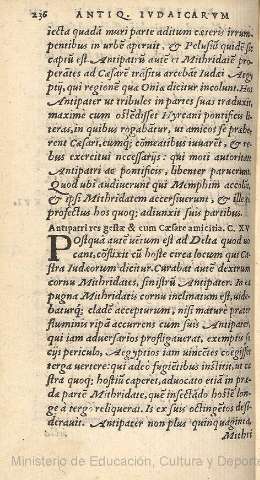 236 ANTIQ. IVDAICARVM
iecta quadã muri parte aditum cæteris irrum-
pentibus in vrbē aperuit, & Pelusiũ quidē sic
captũ est. Antipatrũ autē et Mithridatē pro-
perātes ad Cæsarē trāsitu arcebāt Iudæi Aegy
ptij, qui regionē quæ Oniæ dicitur incolunt. Hos
Antipater vt tribules in partes suas traduxit,
maximè cum ostēdisset Hyrcani pontificis li-
teras, in quibus rogabātur, vt amicos se præbe-
rent Cæsari, eumq́; cōmeatibus iuuarēt, & re-
bus exercitui necessarijs: qui moti autoritate
Antipatri ac pontificis, libenter paruerunt.
Quod vbi audiuerunt qui Memphim accolũt,
& ipsi Mithridatem accersiuerunt, & ille
profectus hos quoq; adiunxit suis partibus.
Antipatri res gestæ & cum Cæsare amicitia. C. XV
POstquā autē vētum est ad Delta quod vo
cant, cōflixit cũ hoste circa locum qui Ca-
stra Iudæorum dicitur. Curabat autē dextrum
cornu Mithridates, sinistrũ Antipater. In ea
pugna Mithridatis cornu inclinatum est, vide-
baturq́; cladē accepturum, nisi mature præter
fluminis ripā accurrens cum suis Antipater,
qui iam aduersarios profligauerat, exemptis
cijs periculo, Aegyptios iam vincētes coegisset
terga vertere: qui adeo fugiētibus institit, vt ca
stra quoq; hostiũ caperet, aduocato etiā in præ-
dā parte Mithridate, quē insectādo hostē lon-
gè à tergo reliquerat. Is ex suis octingētos desi-
derauit. Antipater non plus quinquaginta.
Mithri
Ministerio de Educación, Cultura y Deporte